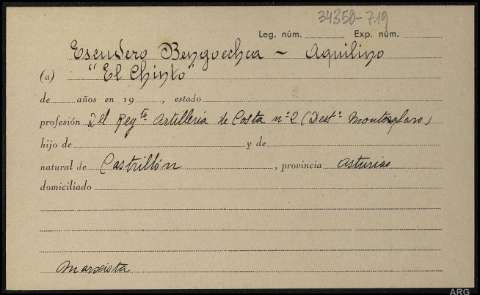 34350-719
Leg. núm. Exp. núm.
Escudero Bengoechea - Aquilino
(a) "El Chinto"
de años en 19 , estado
profesión del Regto Artilleria de Costa nº 2 (Destº
hijo de y de
natural de Castrillón , provincia Asturias
domiciliado
Marxista
ARG